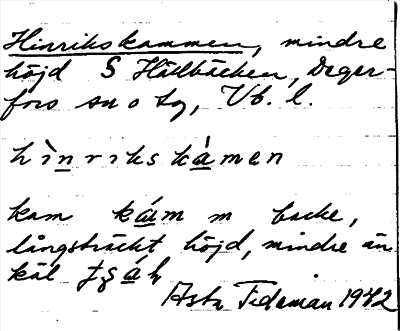 Hinrikskammen, mindre
höjd S Hällbäcken, Deger-
fors sn o tg, Vb. l.
hìnrikskámen
kam kám m backe,
långsträckt höjd, mindre än
käl
Asta Tideman 1942